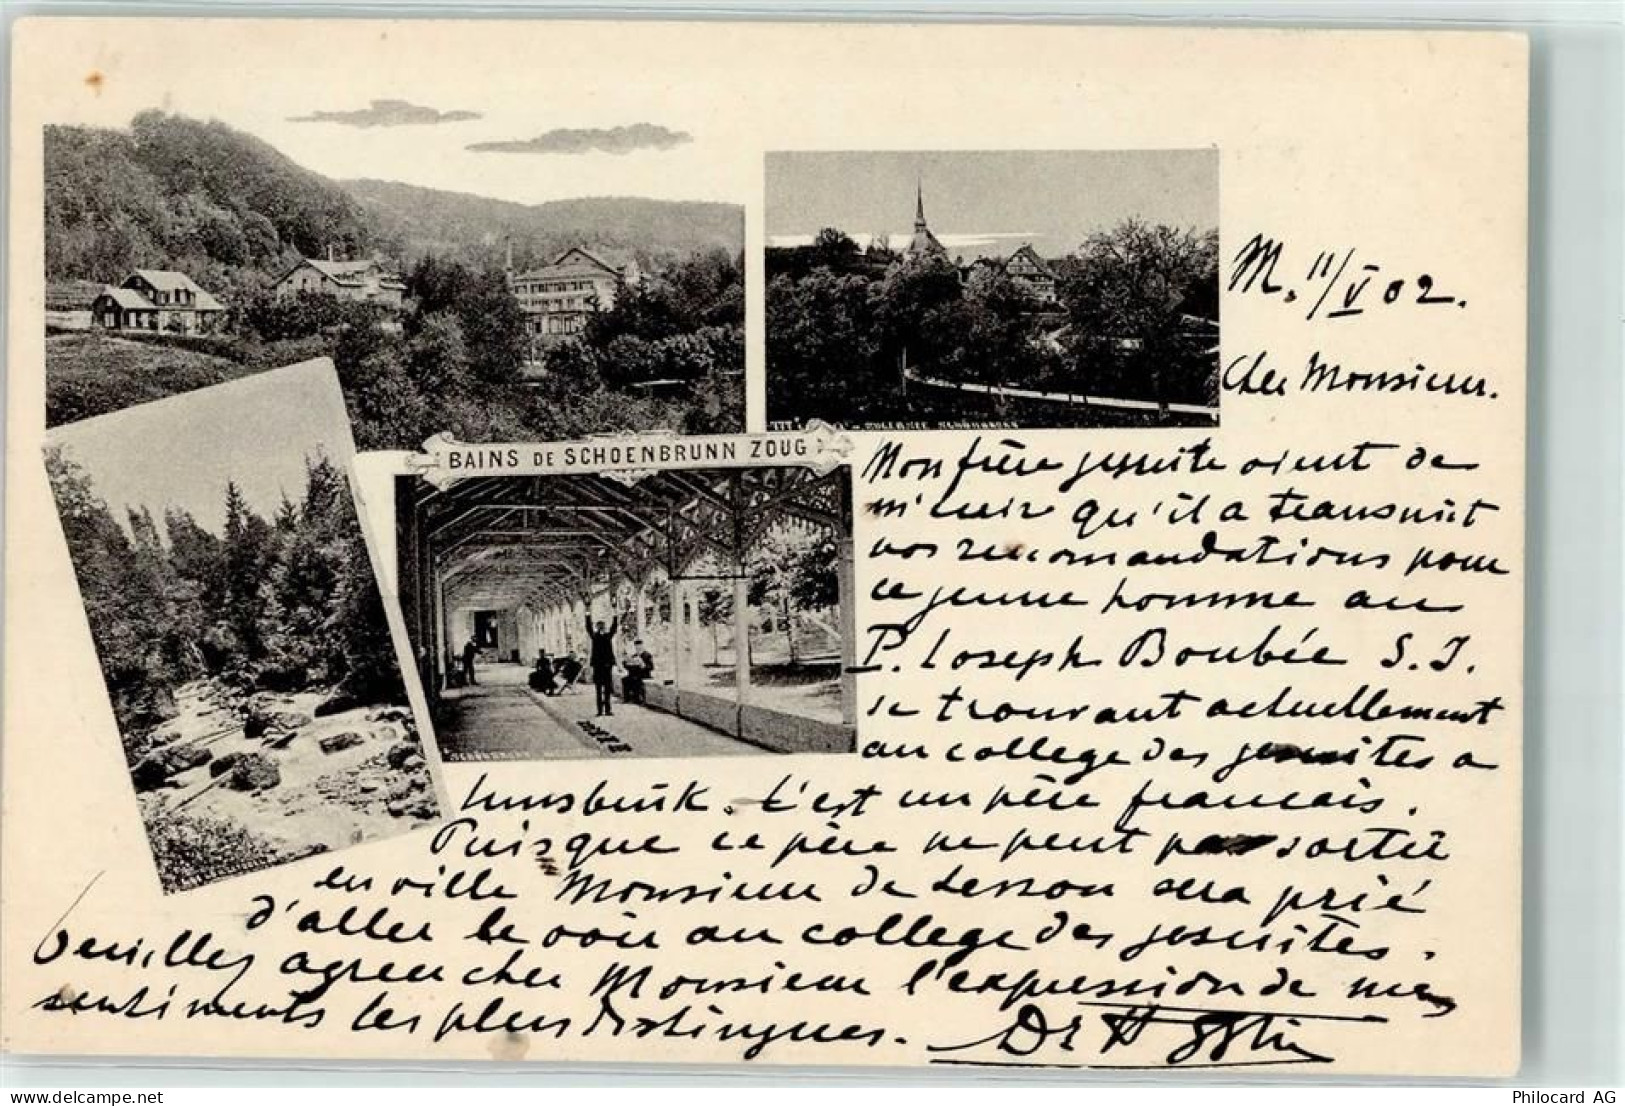 BAINS DE SCHOENBRUNN ZOUG
M. 11/V 02.
Cher Monsieur.
Mon frère jesuite vient de
m'ecrire qu'il a transmit
vos recomandations pour
ce jeune homme au
P. Joseph Boubée S.J.
se trouvant actuellement
au college des jesuites a
Innsbrük. C'est un père francais.
Puisque ce père ne peut pas sortir
en ville Monsieur de sera prié
d'aller le voir au college des jesuites.
Veuillez agreer cher Monsieur l'expression de mes
sentiments les plus distingues. Dr
Philocard AG